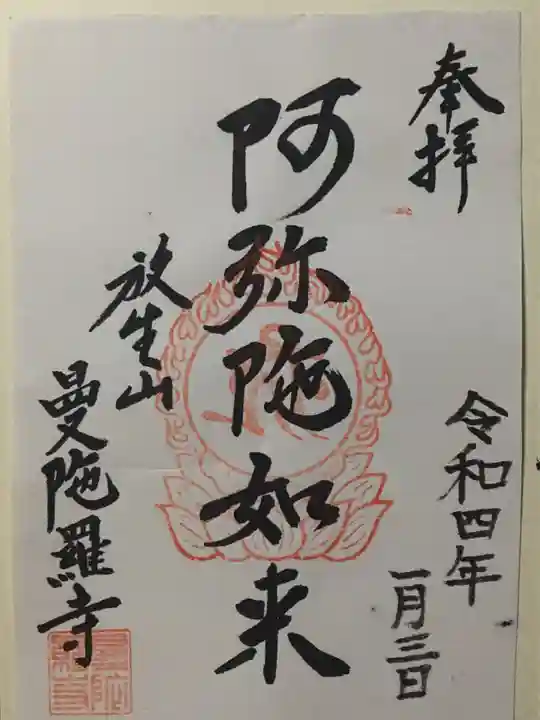 奉拝
令和四年
一月三日
阿弥陀如来
放生山
曼陀羅寺